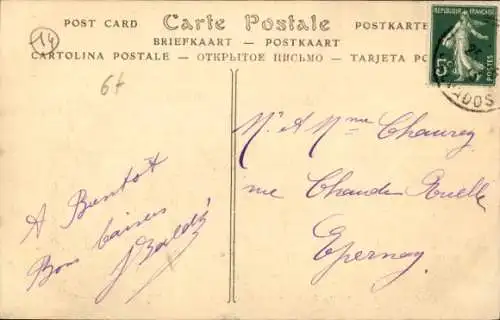 POST CARD Carte Postale POSTKARTE
BRIEFKAART — POSTKAART
CARTOLINA POSTALE — ОТКРЫТОЕ ПИСЬМО — TARJETA PO
14
6f
RÉPUBLIQUE FRANÇAISE
5c
POSTES
A Bientot
Bons baisers
Mr & Mme Chaurey
rue Chaude Ruelle
Epernay